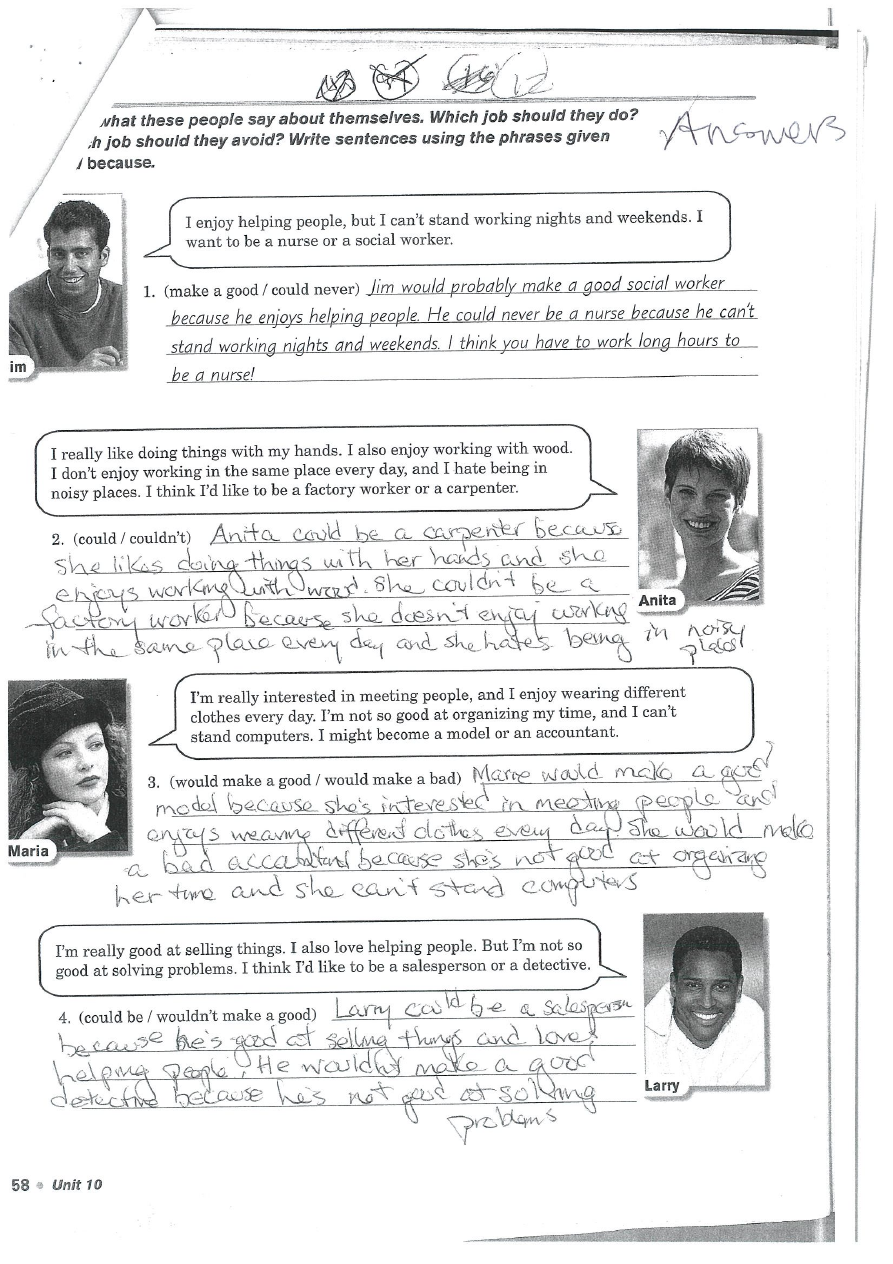 12
what these people say about themselves. Which job should they do?
h job should they avoid? Write sentences using the phrases given
because.
Answers
I enjoy helping people, but I can't stand working nights and weekends. I
want to be a nurse or a social worker.
1. (make a good / could never) Jim would probably make a good social worker
because he enjoys helping people. He could never be a nurse because he can't
stand working nights and weekends. I think you have to work long hours to
be a nurse!
im
I really like doing things with my hands. I also enjoy working with wood.
I don't enjoy working in the same place every day, and I hate being in
noisy places. I think I'd like to be a factory worker or a carpenter.
2. (could / couldn't) Anita could be a carpenter because
she likes doing things with her hands and she
enjoys working with wood. She couldn't be a
factory worker because she doesn't enjoy working
in the same place every day and she hates being in noisy
places.
Anita
I'm really interested in meeting people, and I enjoy wearing different
clothes every day. I'm not so good at organizing my time, and I can't
stand computers. I might become a model or an accountant.
3. (would make a good / would make a bad) Marie would make a good
model because she's interested in meeting people and
enjoys wearing different clothes every day. She would make
a bad accountant because she's not good at organizing
her time and she can't stand computers
Maria
I'm really good at selling things. I also love helping people. But I'm not so
good at solving problems. I think I'd like to be a salesperson or a detective.
4. (could be / wouldn't make a good) Larry could be a salesperson
because he's good at selling things and loves
helping people. He wouldn't make a good
detective because he's not good at solving
problems
Larry
58 Unit 10